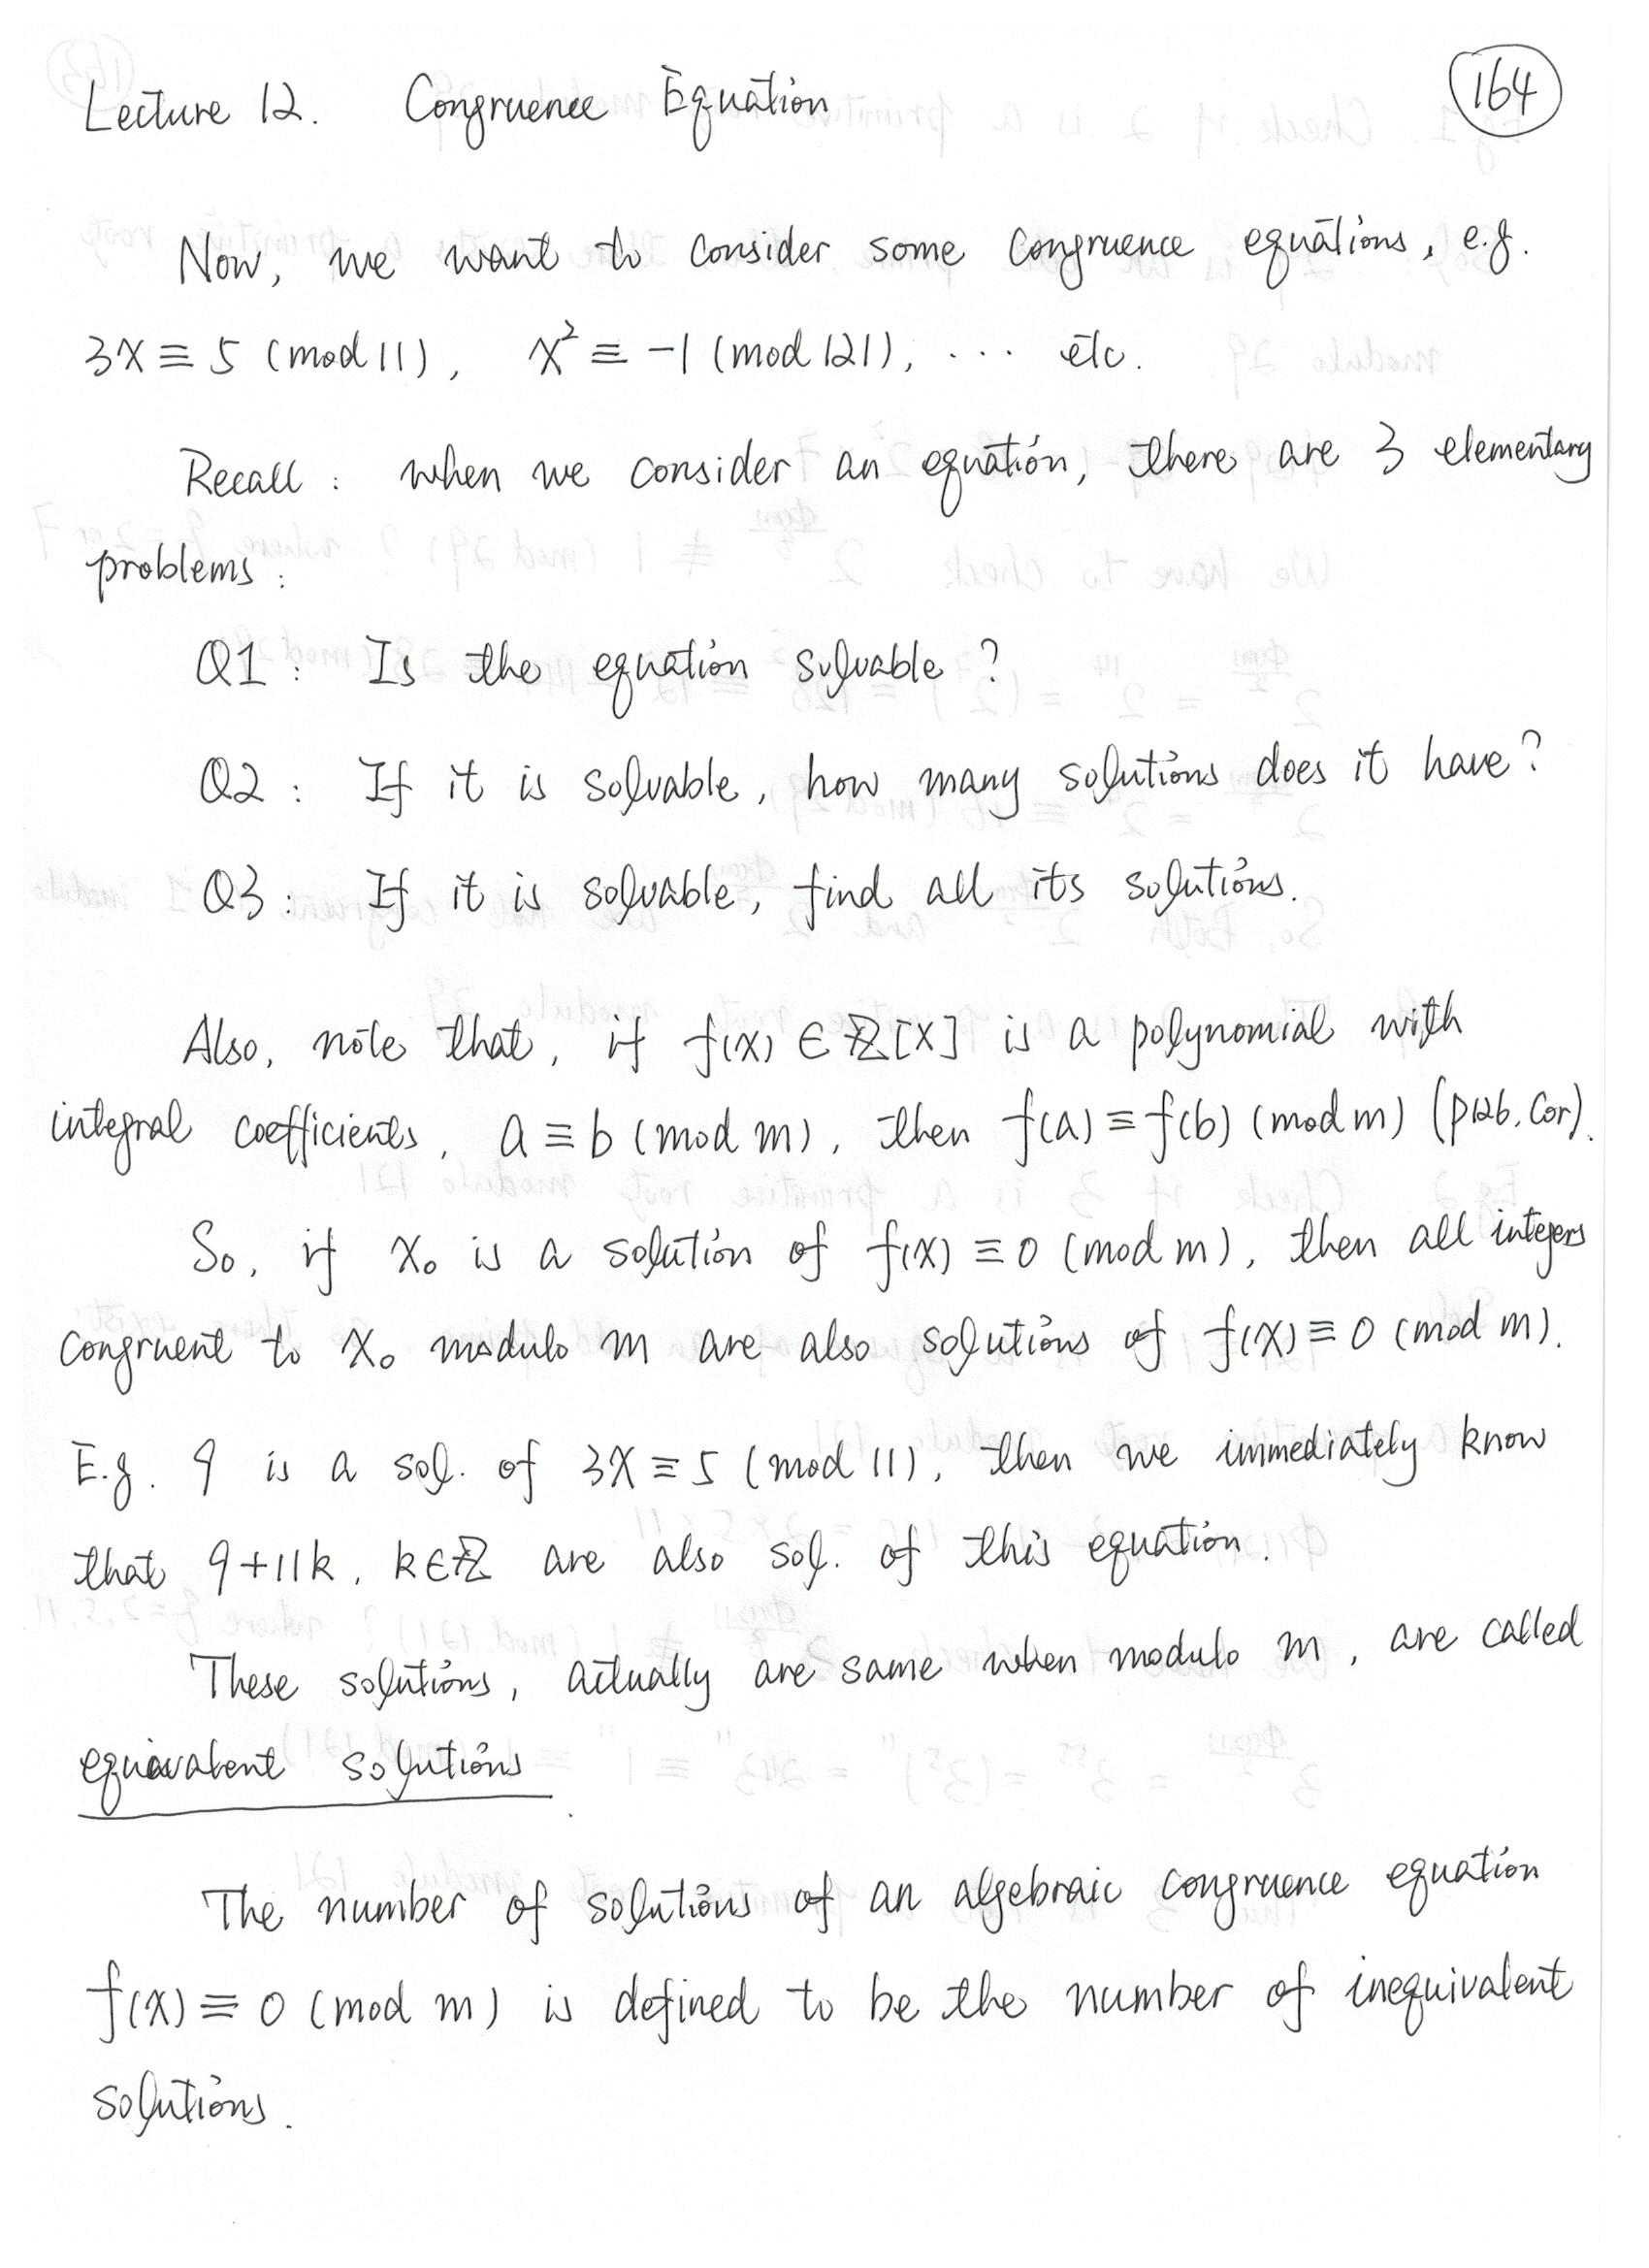 Lecture 12. Congruence Equation 164
Now, we want to consider some congruence equations, e.g.
3x ≡ 5 (mod 11), x² ≡ -1 (mod 121), ... etc.
Recall: when we consider an equation, there are 3 elementary
problems:
Q1: Is the equation solvable?
Q2: If it is solvable, how many solutions does it have?
Q3: If it is solvable, find all its solutions.
Also, note that, if f(x) ∈ ℤ[x] is a polynomial with
integral coefficients, a ≡ b (mod m), then f(a) ≡ f(b) (mod m) (p126, Cor).
So, if x₀ is a solution of f(x) ≡ 0 (mod m), then all integers
congruent to x₀ modulo m are also solutions of f(x) ≡ 0 (mod m).
E.g. 9 is a sol. of 3x ≡ 5 (mod 11), then we immediately know
that 9+11k, k∈ℤ are also sol. of this equation.
These solutions, actually are same when modulo m, are called
equivalent solutions.
The number of solutions of an algebraic congruence equation
f(x) ≡ 0 (mod m) is defined to be the number of inequivalent
solutions.